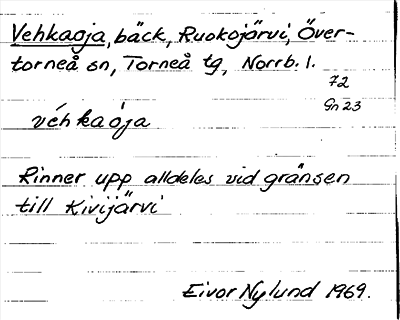 Vehkaoja, bäck, Ruokojärvi, Över-
torneå sn, Torneå tg, Norrb. l.
72
Gn 23
véhkaòja
Rinner upp alldeles vid gränsen
till Kivijärvi
Eivor Nylund 1969.